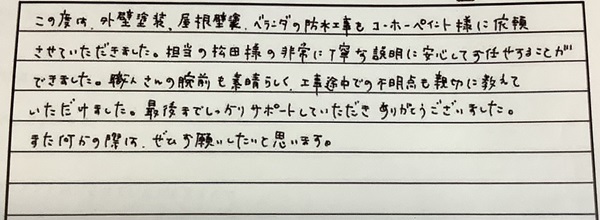 この度は、外壁塗装、屋根壁裏、ベランダの防水工事も コーホーペイント様に依頼
させていただきました。担当の松田様の非常に丁寧な説明に安心してお任せすることが
できました。職人さんの腕前も素晴らしく、工事途中での不明点も親切に教えて
いただけました。最後までしっかりサポートしていただき ありがとうございました。
また何かの際は、ぜひお願いしたいと思います。